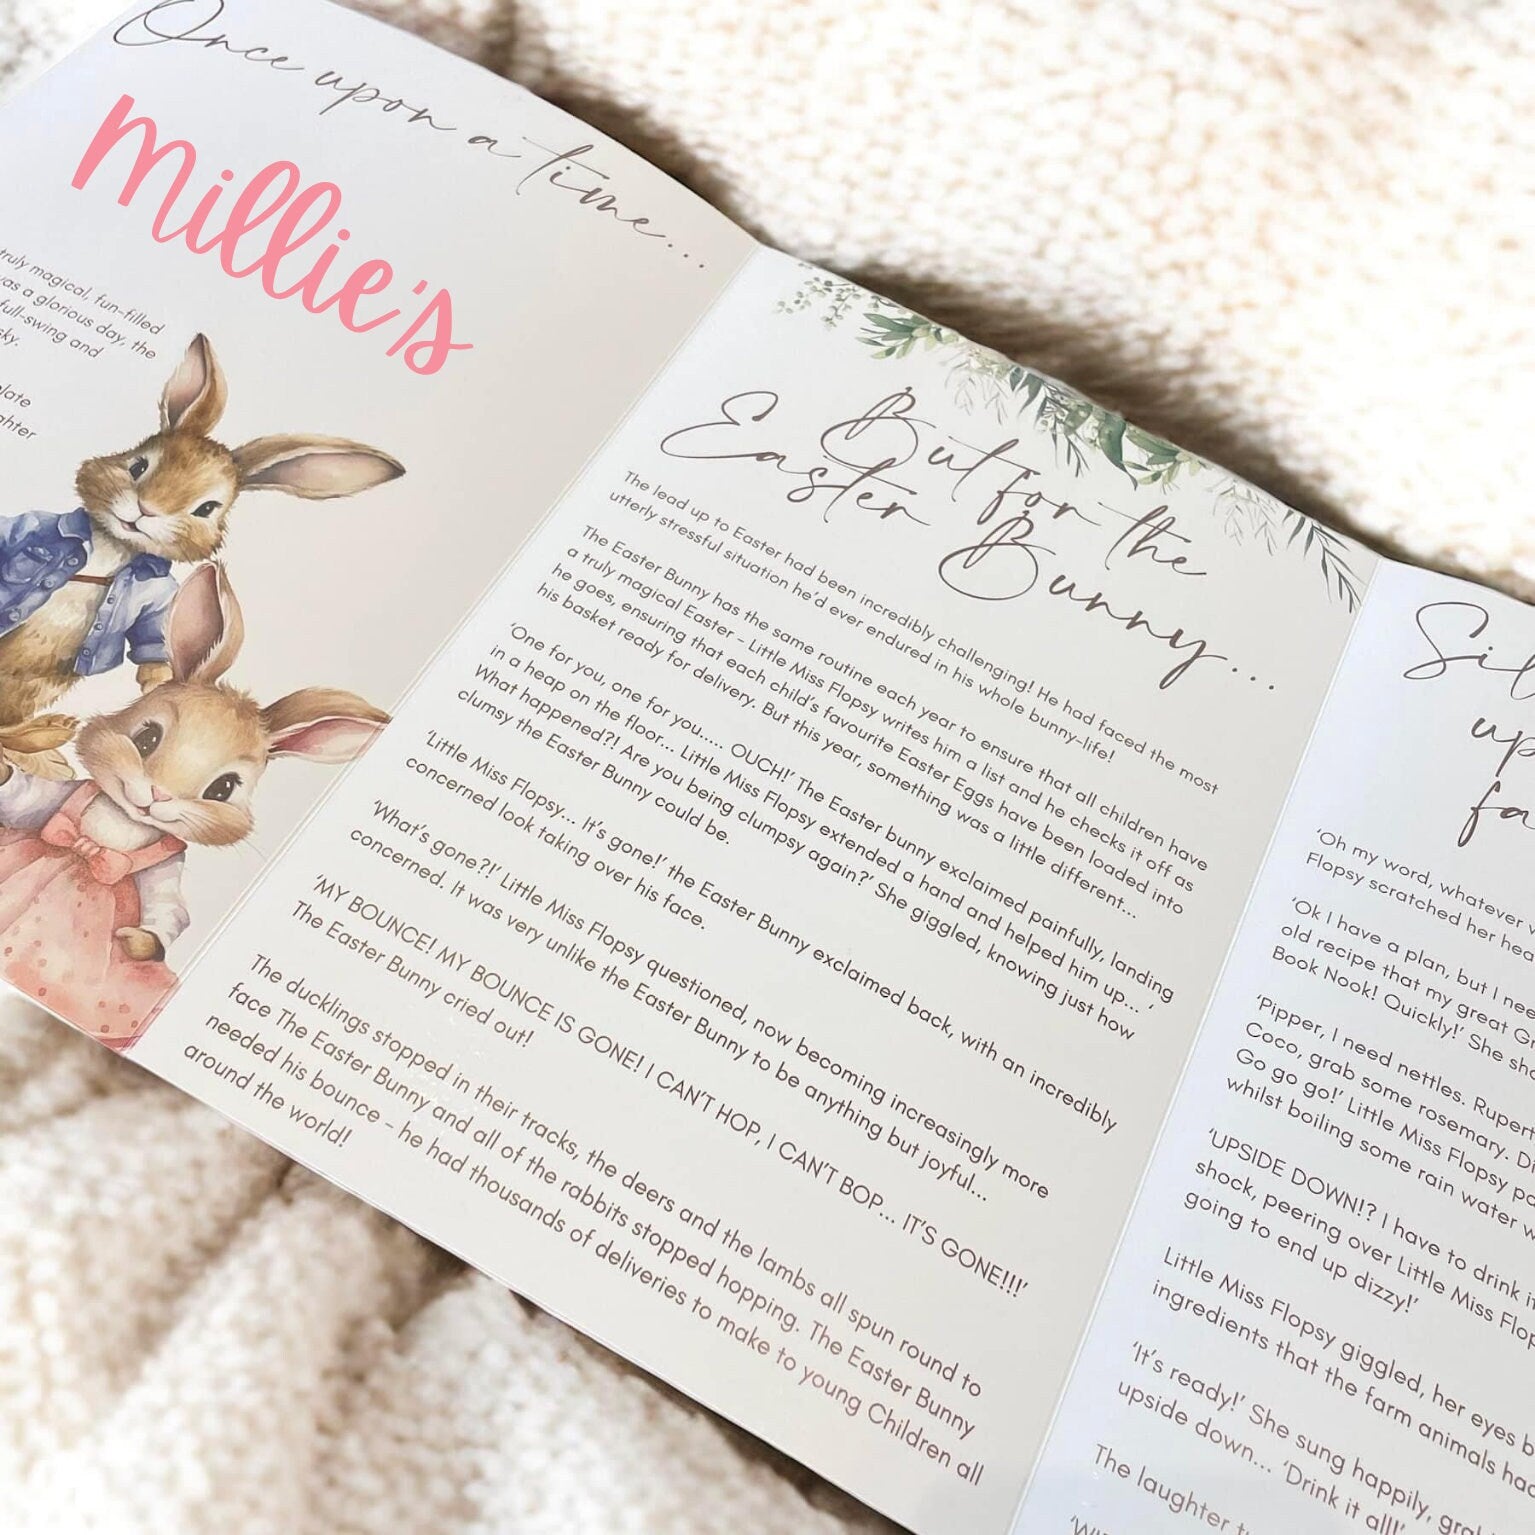 Once upon a time...
Millie's
truly magical, fun-filled
was a glorious day, the
full-swing and
sky.
But for the
Easter Bunny...
The lead up to Easter had been incredibly challenging! He had faced the most
utterly stressful situation he'd ever endured in his whole bunny-life!
The Easter Bunny has the same routine each year to ensure that all children have
a truly magical Easter - Little Miss Flopsy writes him a list and he checks it off as
he goes, ensuring that each child's favourite Easter Eggs have been loaded into
his basket ready for delivery. But this year, something was a little different...
'One for you, one for you..... OUCH!' The Easter bunny exclaimed painfully, landing
in a heap on the floor... Little Miss Flopsy extended a hand and helped him up... '
What happened?! Are you being clumpsy again?' She giggled, knowing just how
clumsy the Easter Bunny could be.
'Little Miss Flopsy... It's gone!' the Easter Bunny exclaimed back, with an incredibly
concerned look taking over his face.
'What's gone?!' Little Miss Flopsy questioned, now becoming increasingly more
concerned. It was very unlike the Easter Bunny to be anything but joyful...
'MY BOUNCE! MY BOUNCE IS GONE! I CAN'T HOP, I CAN'T BOP... IT'S GONE!!!'
The Easter Bunny cried out!
The ducklings stopped in their tracks, the deers and the lambs all spun round to
face The Easter Bunny and all of the rabbits stopped hopping. The Easter Bunny
needed his bounce - he had thousands of deliveries to make to young Children all
around the world!
up
'Oh my word, whatever
Flopsy scratched her
'Ok I have a plan, but I
old recipe that my great
Book Nook! Quickly!' She
'Pipper, I need nettles. Rupert
Coco, grab some rosemary.
Go go go!' Little Miss Flopsy
whilst boiling some rain water
'UPSIDE DOWN!? I have to drink
shock, peering over Little Miss
going to end up dizzy!'
Little Miss Flopsy giggled, her eyes
ingredients that the farm animals
'It's ready!' She sung happily,
upside down... 'Drink it all!'
The laughter